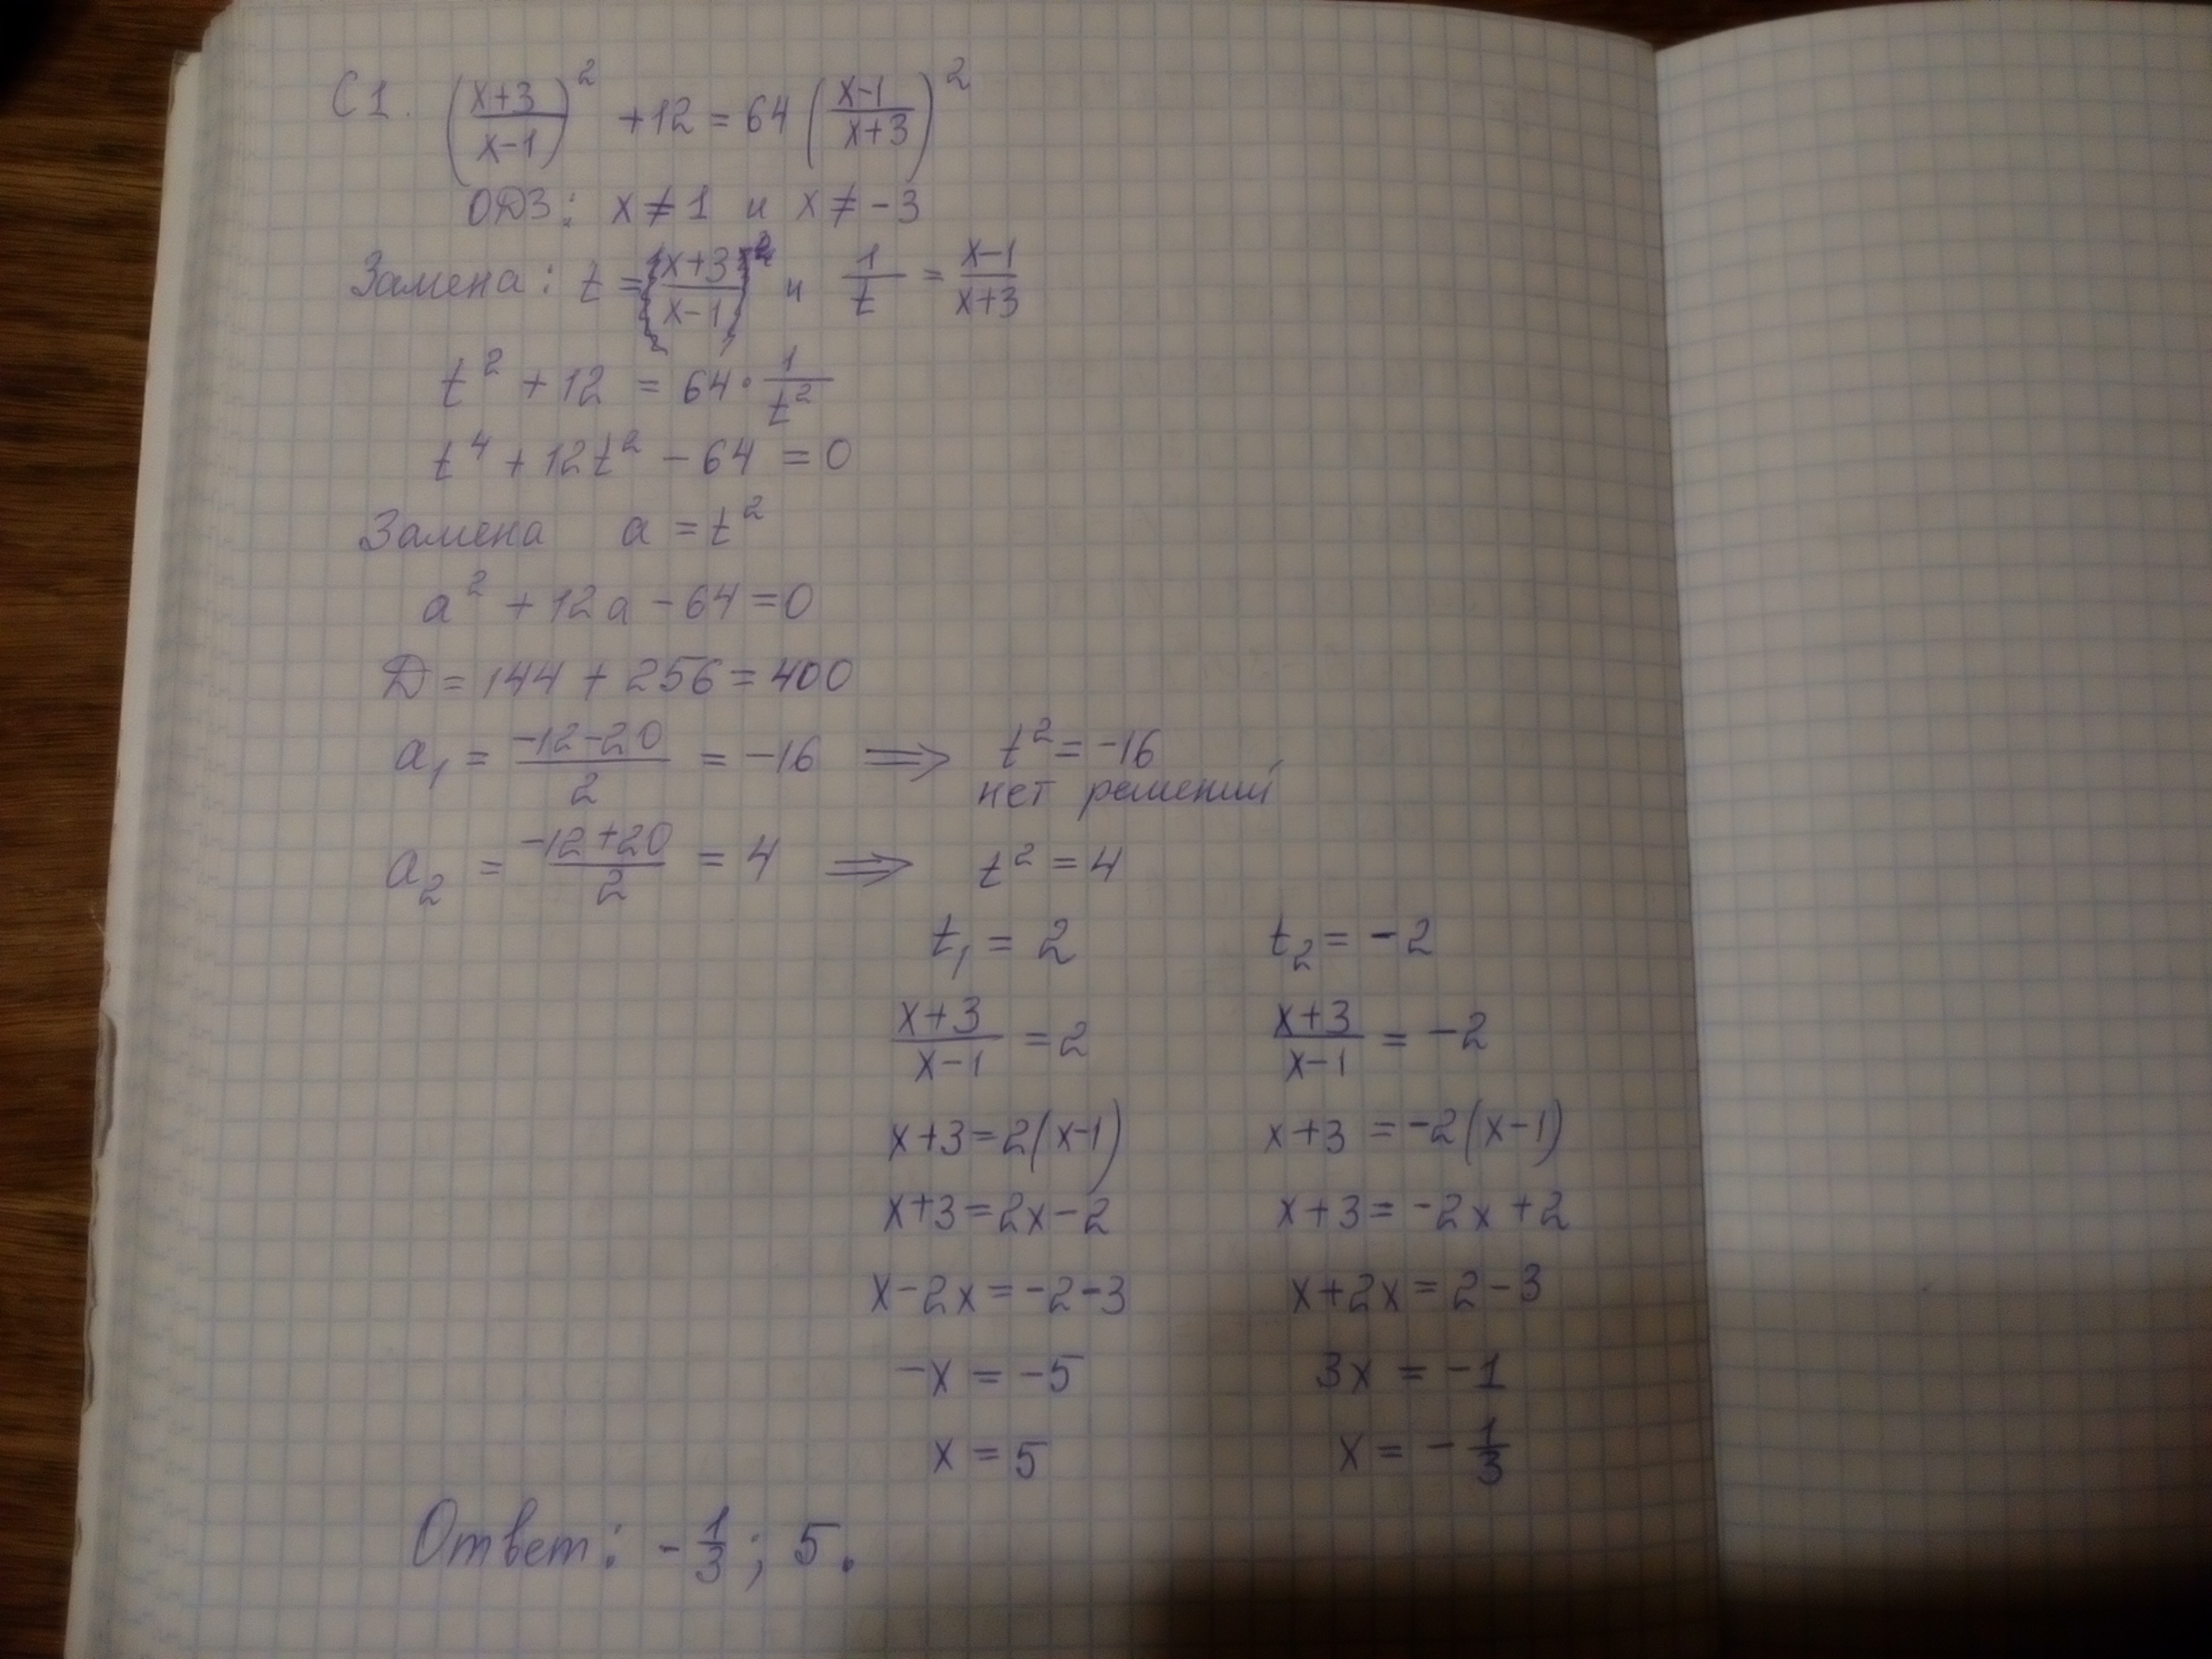 С1. ((x+3)/(x-1))² + 12 = 64 ((x-1)/(x+3))²
ОДЗ: x ≠ 1 и x ≠ -3
Замена: t = (x+3)/(x-1) и 1/t = (x-1)/(x+3)
t² + 12 = 64 · 1/t²
t⁴ + 12t² - 64 = 0
Замена a = t²
a² + 12a - 64 = 0
D = 144 + 256 = 400
a₁ = (-12-20)/2 = -16 ⟹ t² = -16
нет решений
a₂ = (-12+20)/2 = 4 ⟹ t² = 4
t₁ = 2 t₂ = -2
(x+3)/(x-1) = 2 (x+3)/(x-1) = -2
x+3 = 2(x-1) x+3 = -2(x-1)
x+3 = 2x-2 x+3 = -2x+2
x-2x = -2-3 x+2x = 2-3
-x = -5 3x = -1
x = 5 x = -1/3
Ответ: -1/3; 5.